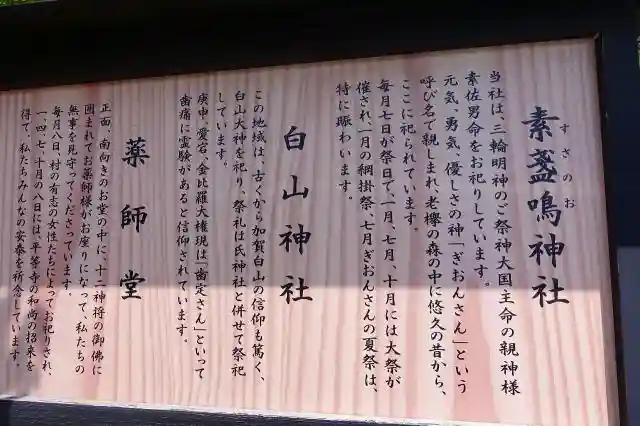 すさのお
素盞鳴神社
当社は、三輪明神のご祭神大国主命の親神様
素佐男命をお祀りしています。
元気、勇気、優しさの神「ぎおんさん」という
呼び名で親しまれ、老欅の森の中に悠久の昔から、
ここに祀られています。
毎月七日が祭日で、一月、七月、十月には大祭が
催され、一月の綱掛祭、七月ぎおんさんの夏祭は、
特に賑わいます。
白山神社
この地域は、古くから加賀白山の信仰も篤く、
白山大神を祀り、祭礼は氏神社と併せて祭祀
しています。
庚申、愛宕、金比羅大権現は「歯定さん」といって
歯痛に霊験があると信仰されています。
薬師堂
正面、南向きのお堂の中に、十二神将の御佛に
囲まれてお薬師様がお座りになって、私たちの
無事を見守ってくださっています。
毎月八日、村の有志の女性たちによってお祀りされ、
一、四、七、十月の八日には、平等寺の和尚の招来を
得て、私たちみんなの安泰を祈念しています。